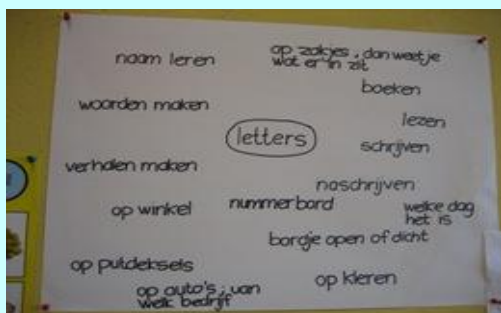 naam leren
op zakjes, dan weet je
wat er in zit
boeken
woorden maken
lezen
letters
schrijven
verhalen maken
naschrijven
op winkel
nummerbord
welke dag
het is
bordje open of dicht
op putdeksels
op kleren
op auto's, van
welk bedrijf